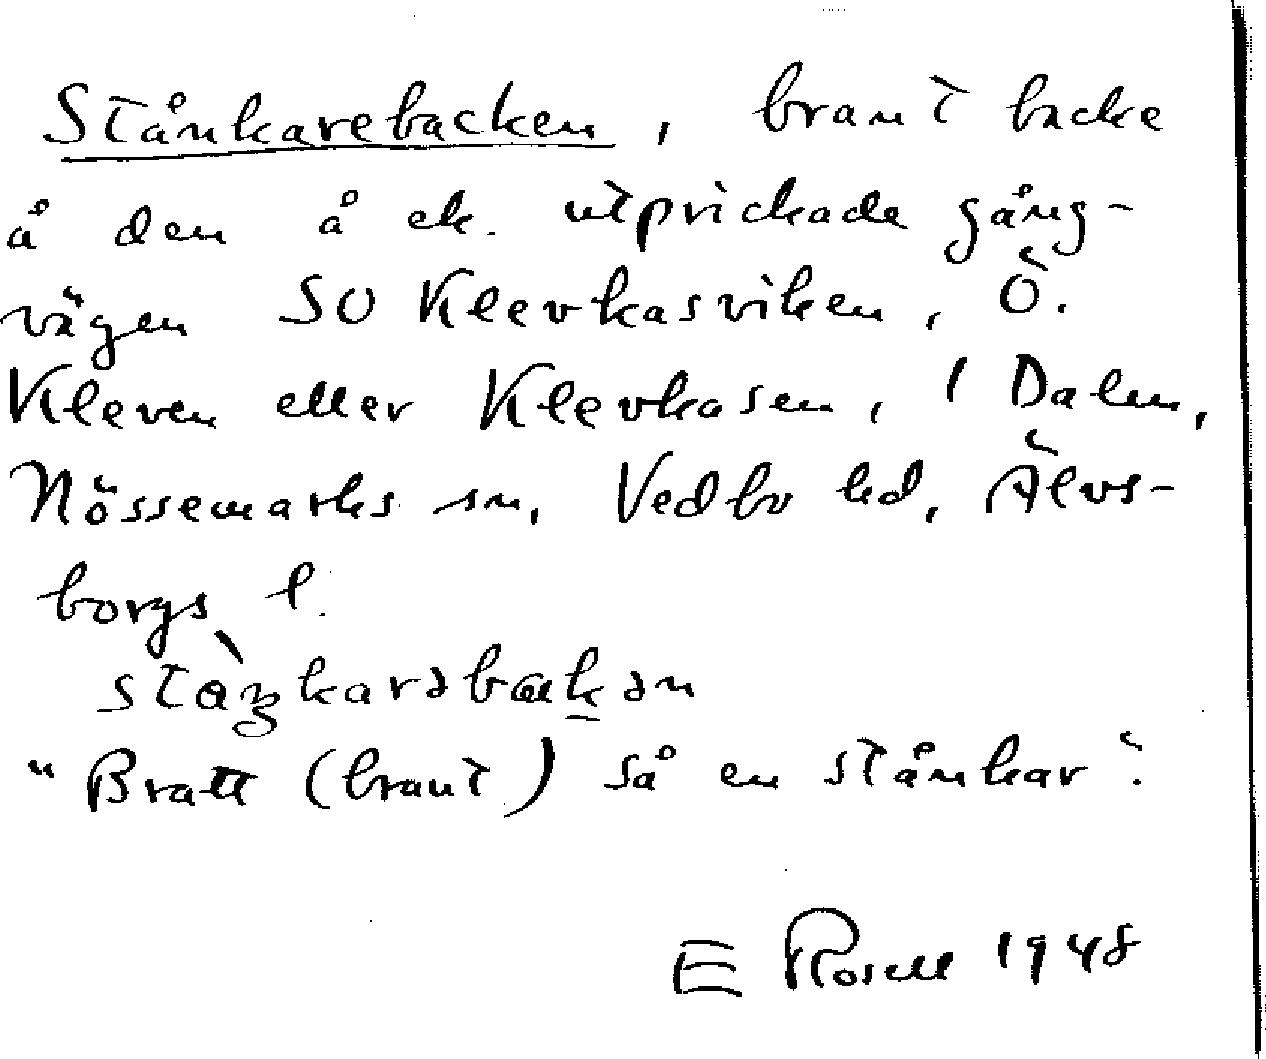 Stånkarebacken, brant backe
å den å ek. utprickade gång-
vägen SO Klevkasviken, Ö.
Kleven eller Klevkasen, 1 Dalen,
Nössemarks sn, Vedbo hd, Älvs-
borgs l.
"Bratt (brant) så en stånkar".
E Rosell 1948